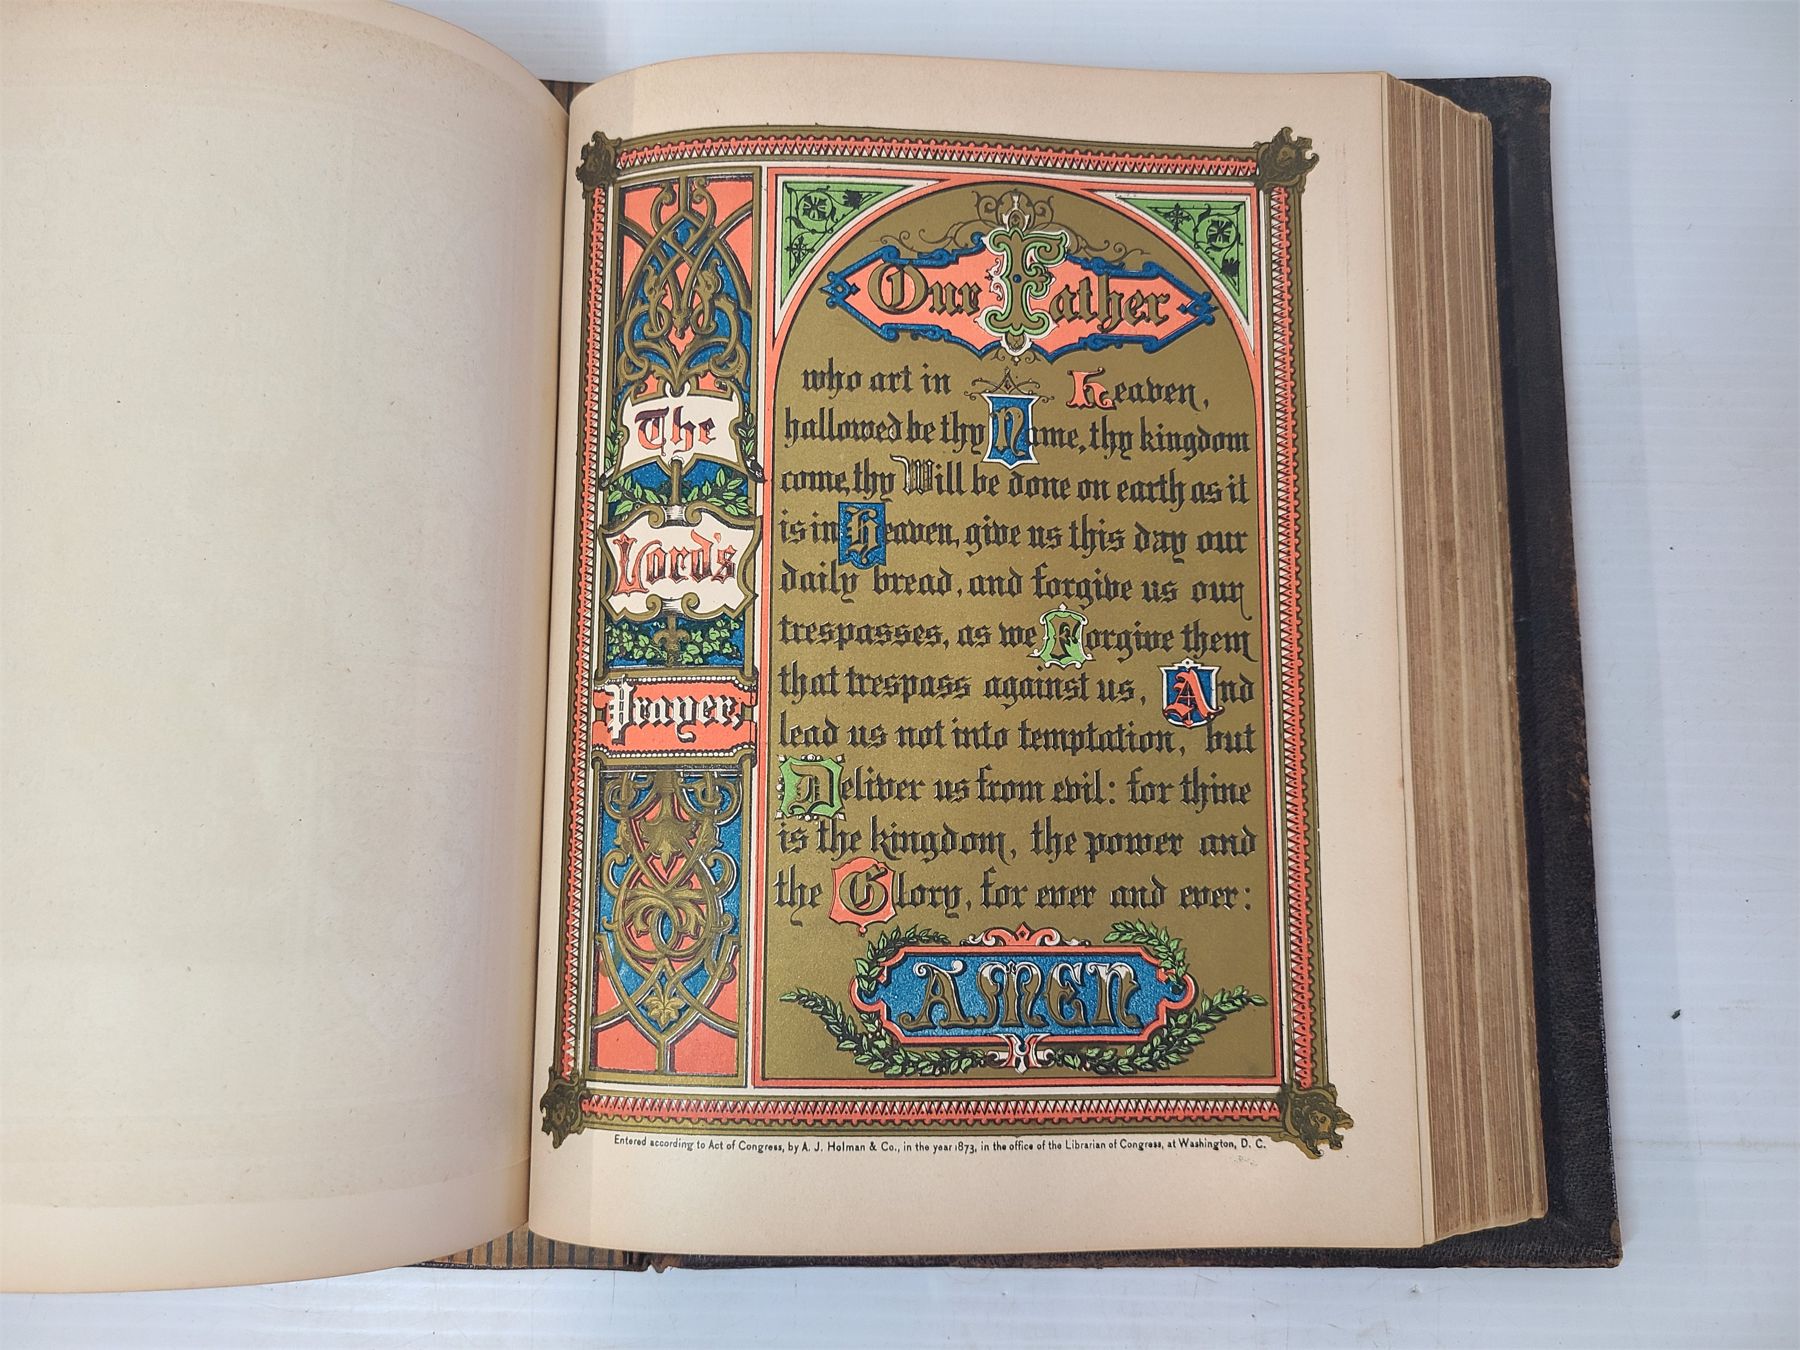 The
Lord's
Prayer,
Our Father
who art in Heaven,
hallowed be thy Name, thy kingdom
come, thy Will be done on earth as it
is in Heaven, give us this day our
daily bread, and forgive us our
trespasses, as we Forgive them
that trespass against us, And
lead us not into temptation, but
Deliver us from evil: for thine
is the kingdom, the power and
the Glory, for ever and ever:
AMEN
Entered according to Act of Congress, by A. J. Holman & Co., in the year 1873, in the office of the Librarian of Congress, at Washington, D. C.